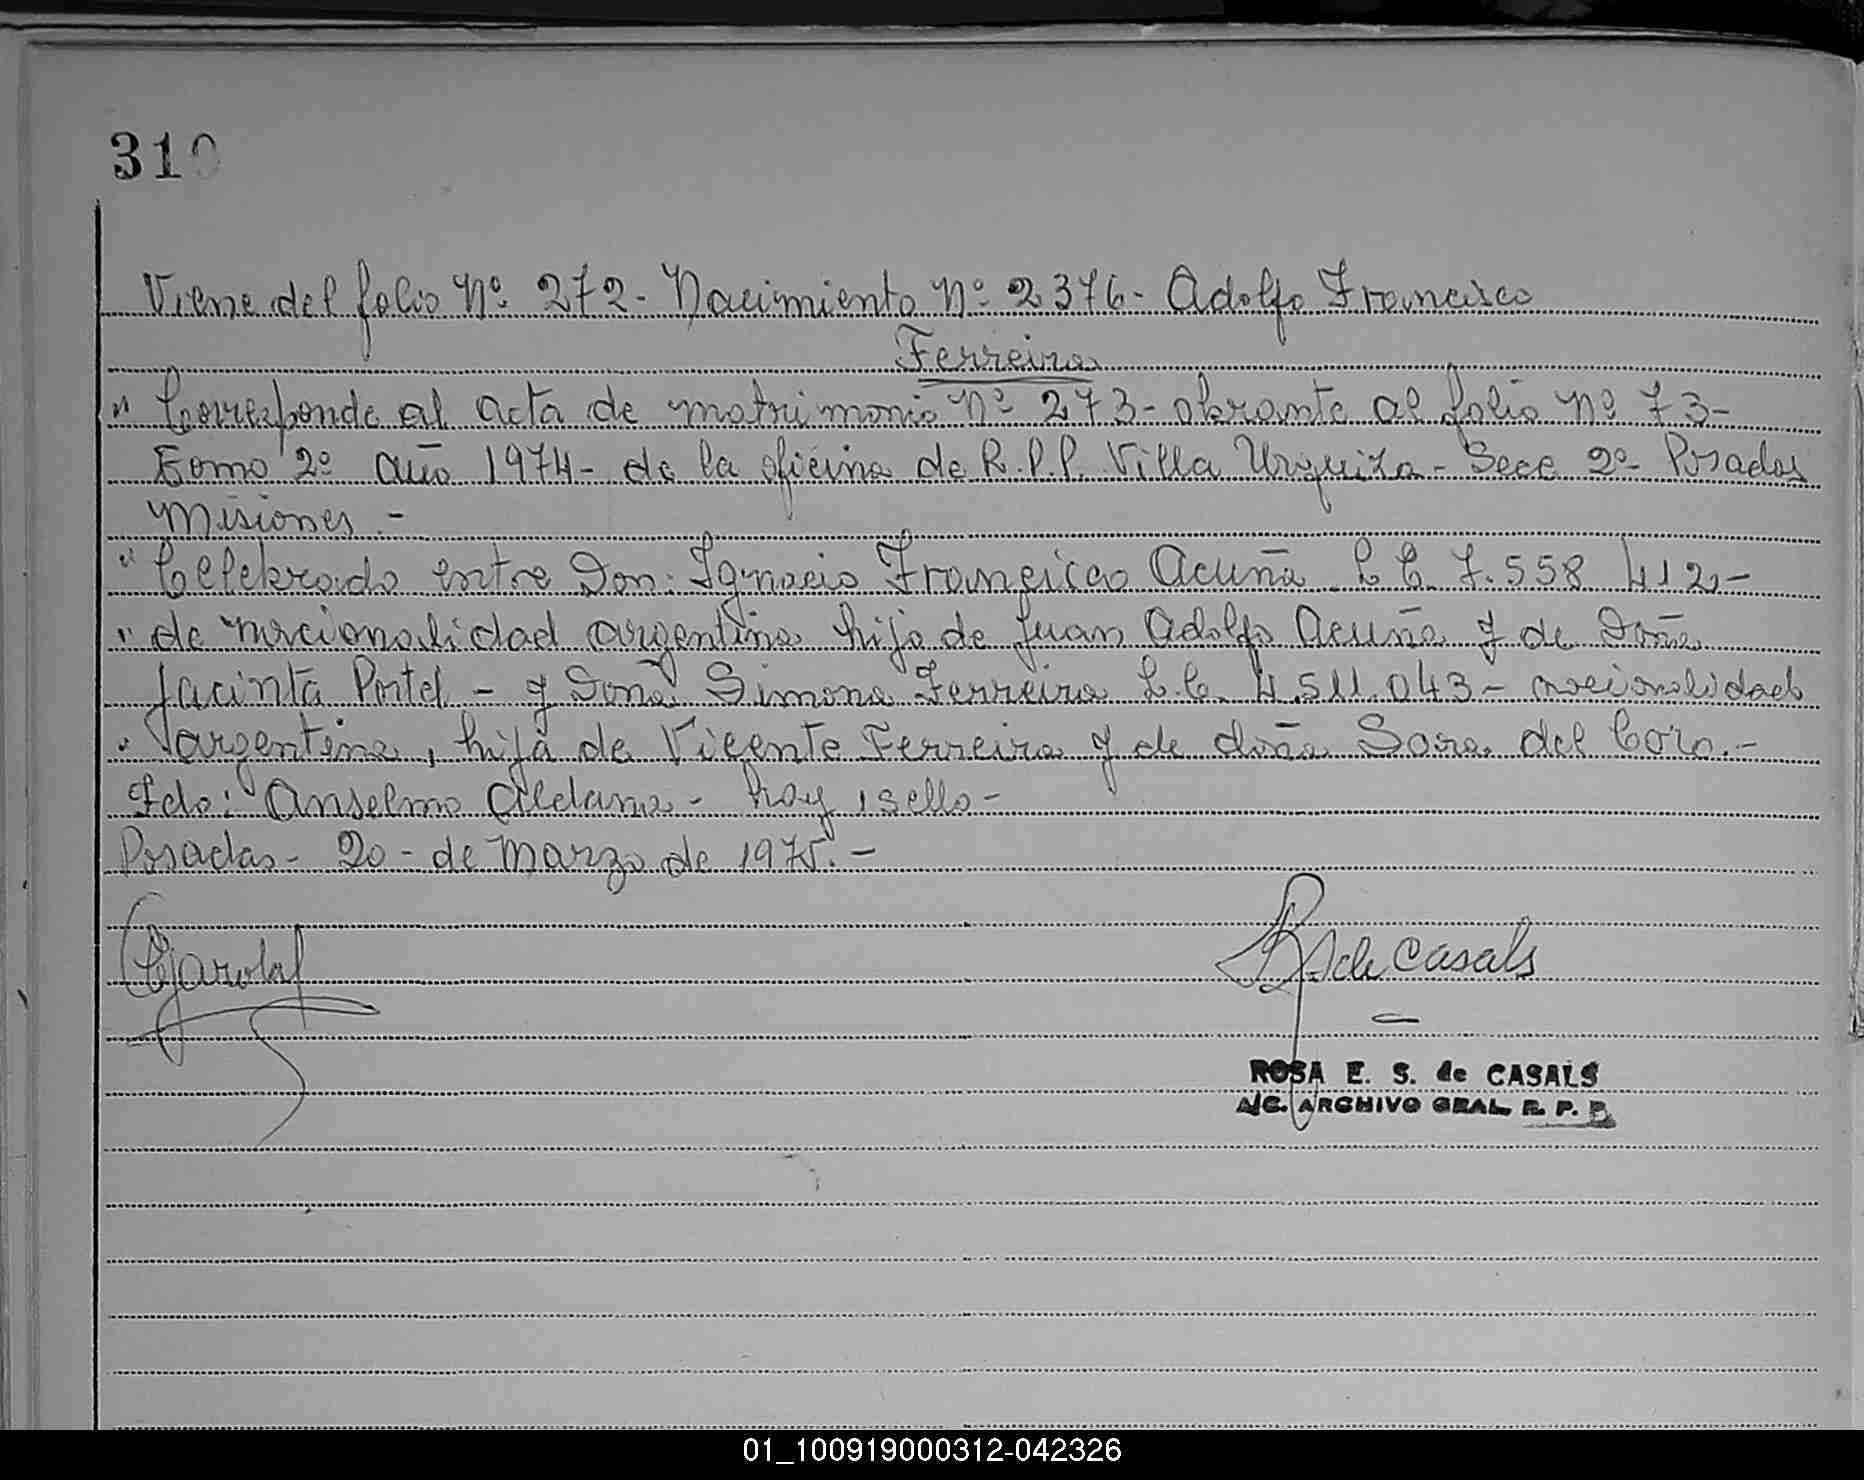 310
Viene del folio Nº 272 - Nacimiento Nº 2376 - Adolfo Francisco
Ferreira
" Corresponde al acta de matrimonio Nº 273 - obrante al folio Nº 73 -
Tomo 2º año 1974 - de la oficina de R.P.P. Villa Urquiza - Secc 2º - Posadas
Misiones. -
" Celebrado entre Don: Ignacio Francisco Acuña L E 7.558 412 -
" de nacionalidad argentina hijo de Juan Adolfo Acuña y de Doña
Jacinta Portel - y Doña Simona Ferreira L.C. 4.511.043 - nacionalidad
" argentina, hija de Vicente Ferreira y de doña Sara del Coro. -
Fdo: Anselmo Aldama - hay 1 sello -
Posadas - 20 - de Marzo de 1975. -
de Casals
ROSA E. S. de CASALS
A/C. ARCHIVO GRAL. R. P. P.
01_100919000312-042326